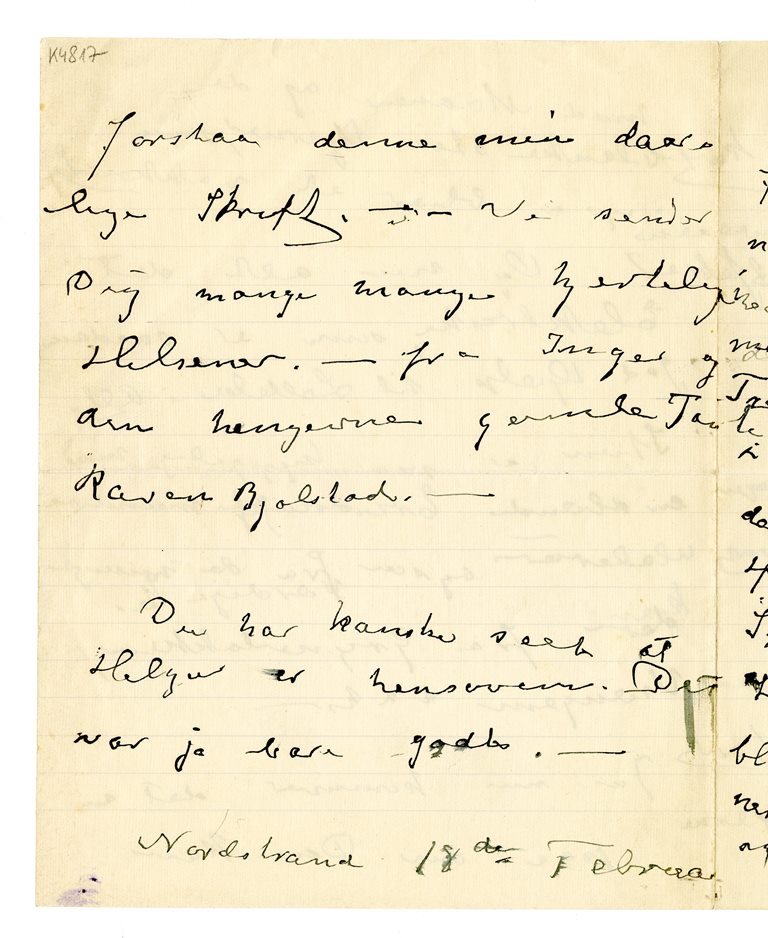 K4817
Forstaa denne min daar-
lige Skrift. — Vi sender
Dig mange mange hjertelige
Helsener. — fra Inger og
den hengevne gamle Tante
Karen Bjølstad. —
Du har kanske seet at
Helga er hensoven. Det
var ja bare godt. —
Nordstrand 18de Februa